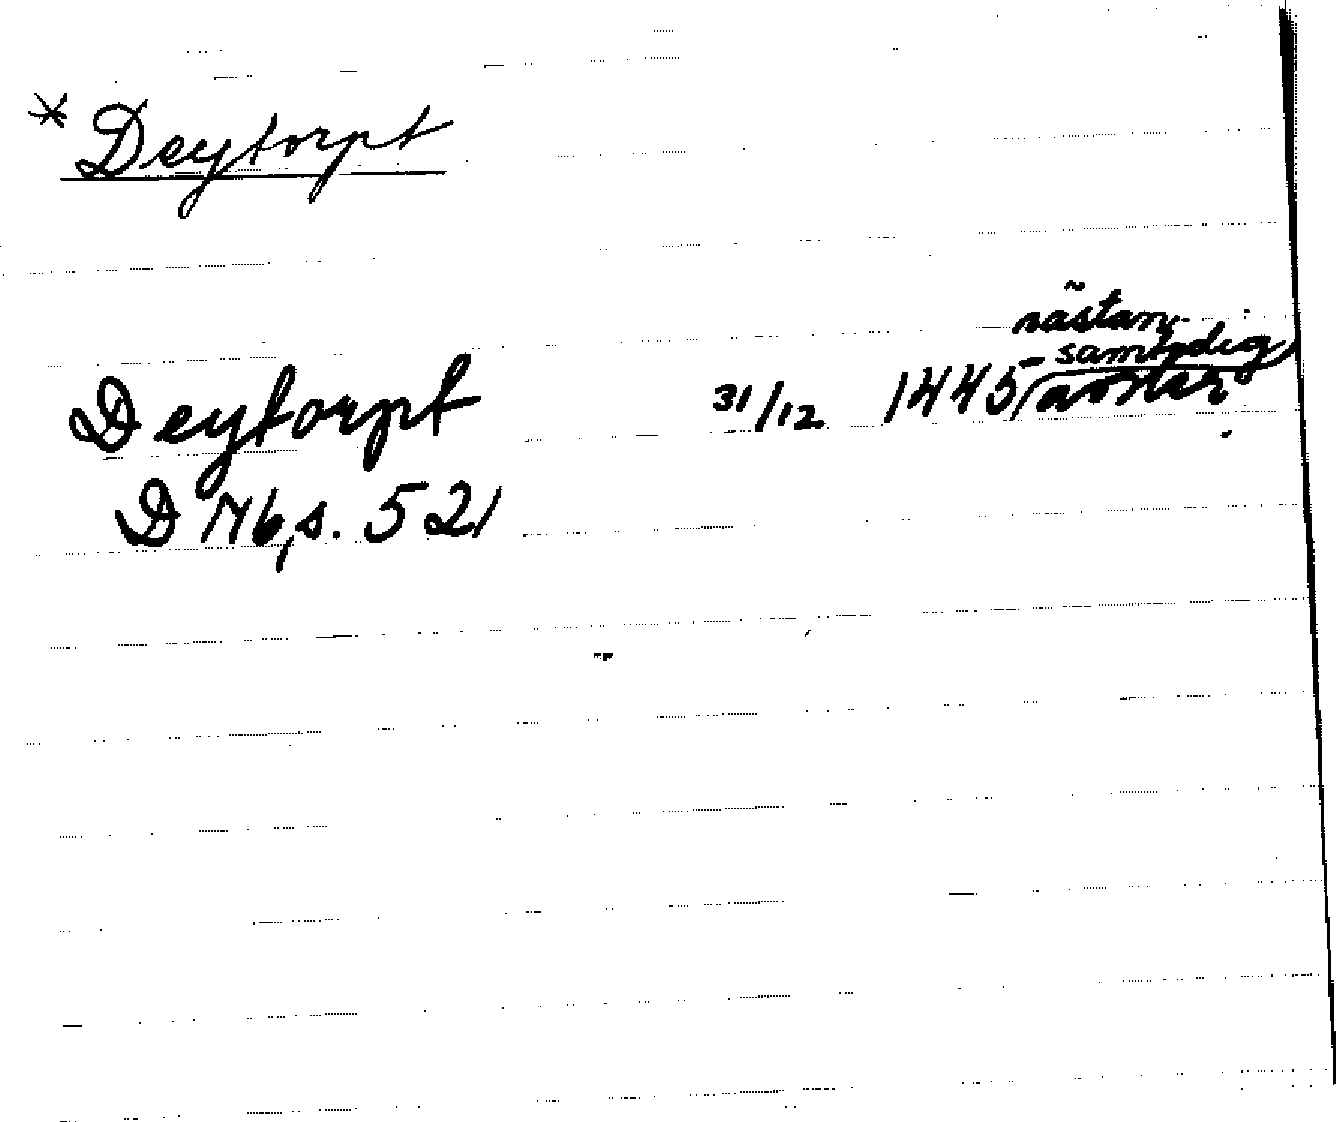 * Deytorpt
nästan
samtidig
Deytorpt 31/12 1445 (avskr.
D N6, s. 521